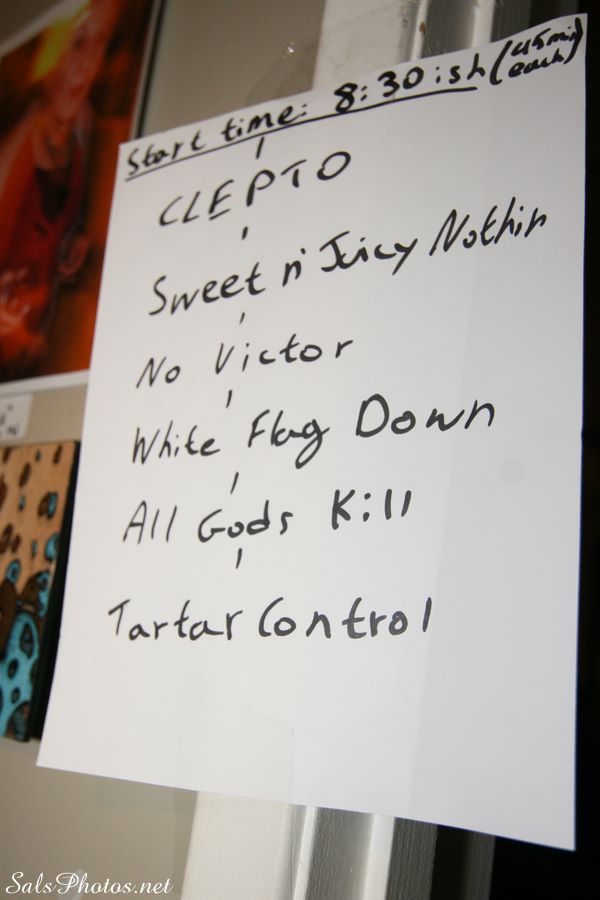 Start time: 8:30ish (45 min each)
CLEPTO
Sweet n' Juicy Nothin
No Victor
White Flag Down
All Gods Kill
Tartar Control
SalsPhotos.net